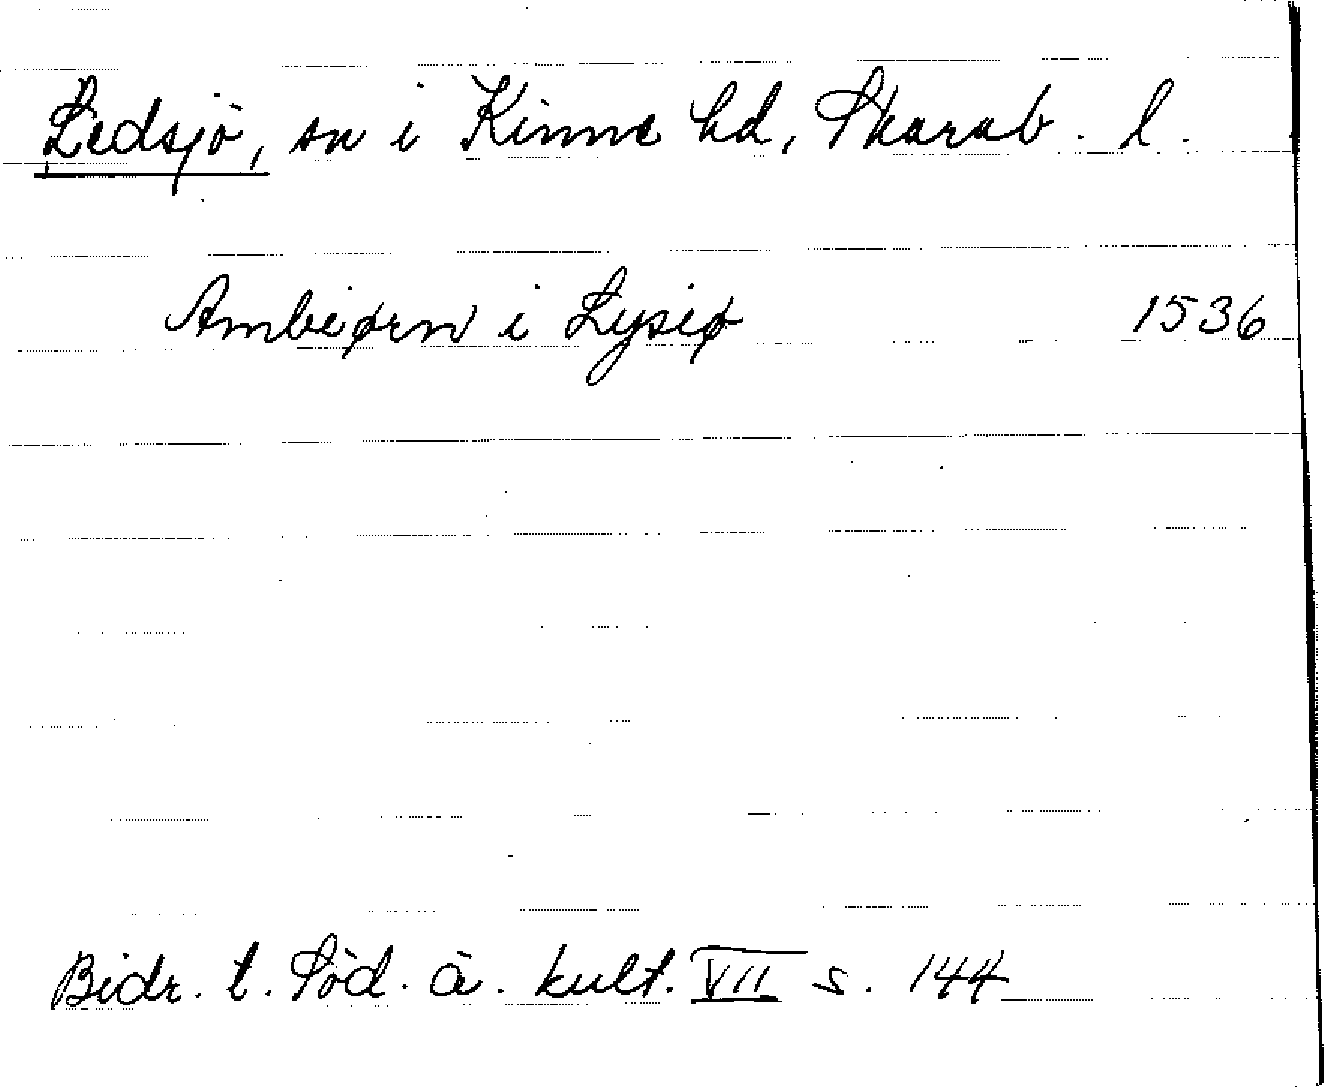 Ledsjö, sn i Kinne hd, Skarab. l.
Ambiørn i Lysiø 1536
Bidr. t. Söd. ä. kult. VII s. 144